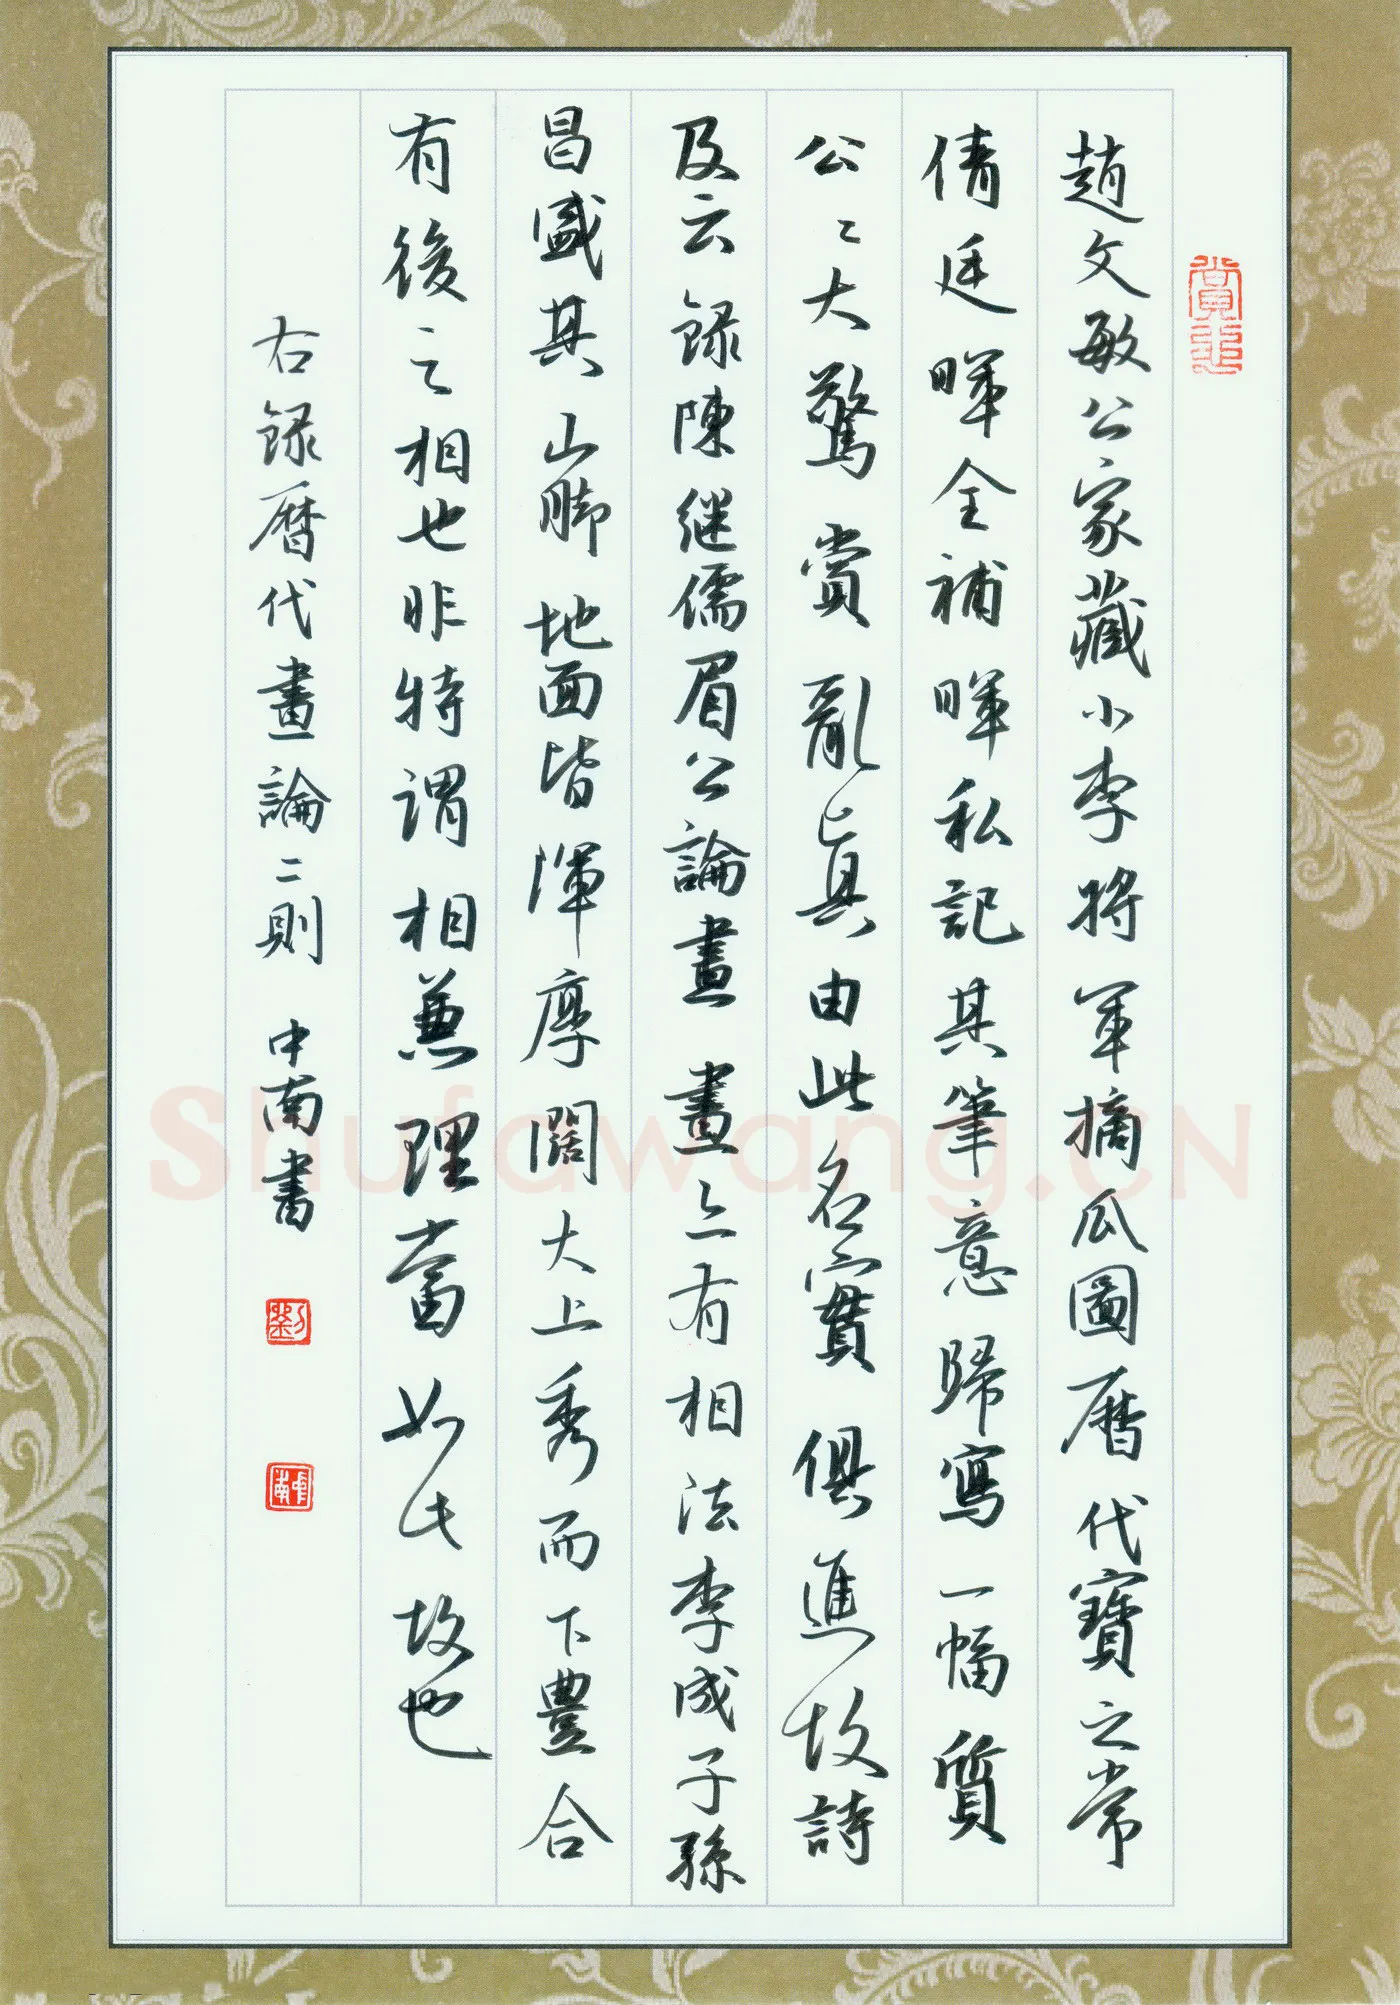 趙文敏公家藏小李將軍摘瓜圖曆代寶之常
倩廷暉全補暉私記其筆意歸寫一幅質
公〻大驚賞亂真由此名實俱進故詩
及云錄陳継儒眉公論畫畫亦有相法李成子孫
昌盛其山脚地面皆渾厚闊大上秀而下豐合
有後之相也非特謂相兼理當如此故也
右録曆代畫論二則 中南書
劉
中南
Shufawang.CN